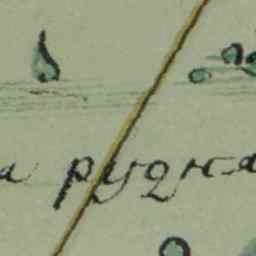 а рудна